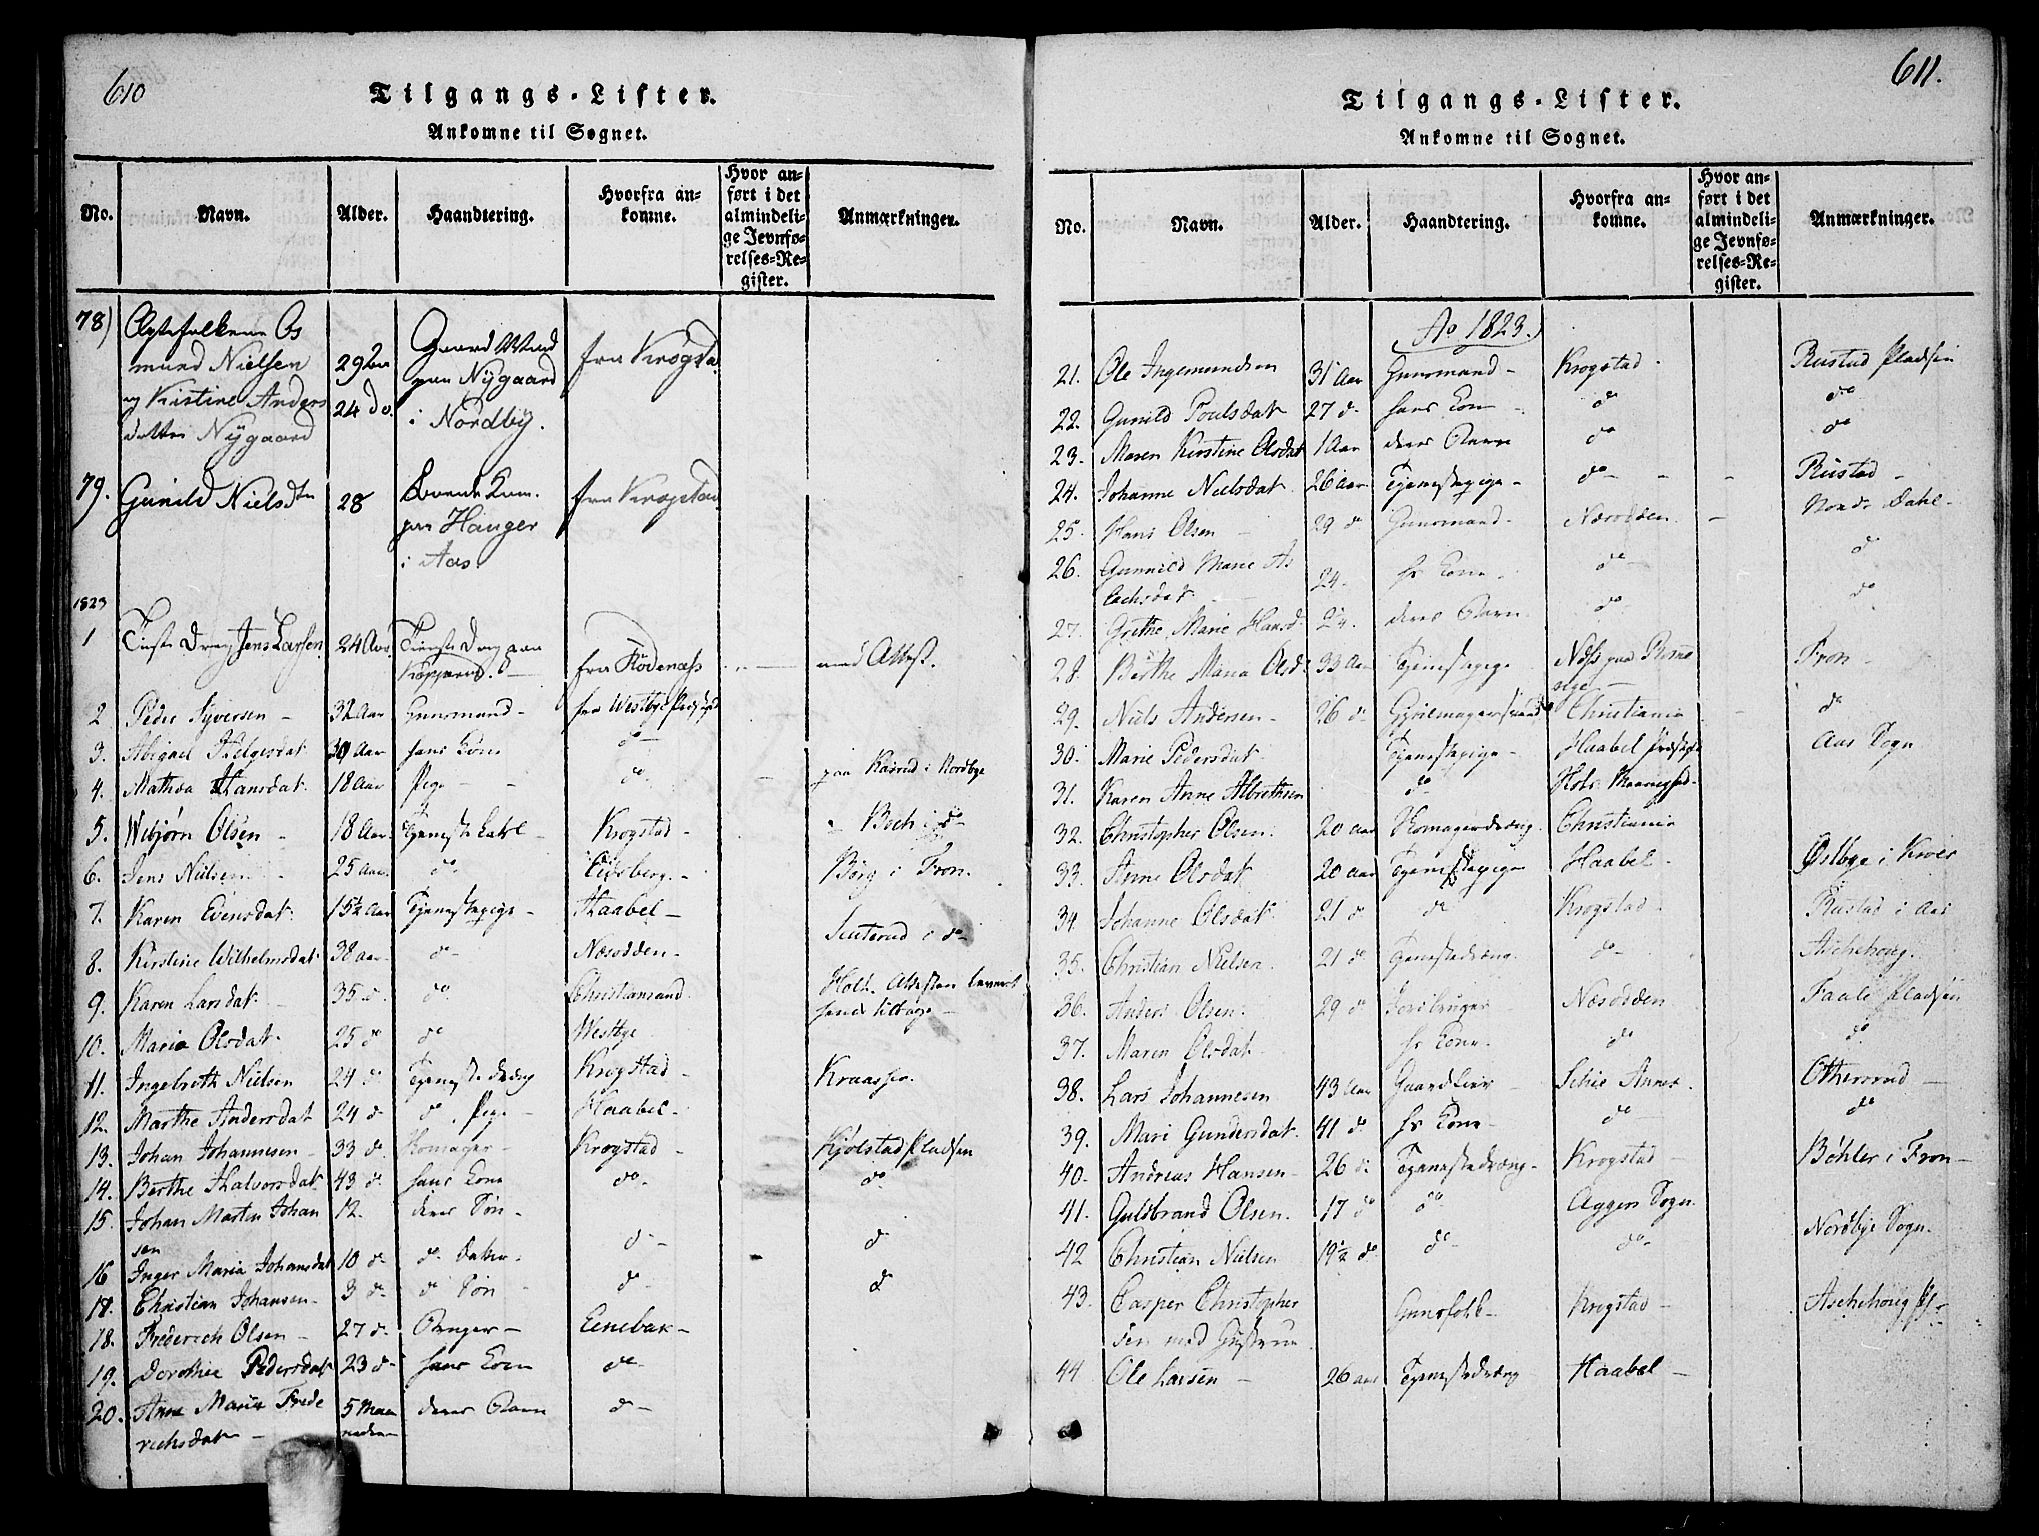 610
Tilgangs-Lister.
Ankomne til Sognet.
No. Navn. Alder. Haandtering. Hvorfra ankomne. Hvor anført i det almindelige Jevnførelses-Register. Anmærkninger.
78) Ægtefolkene Os
mund Nielsen 29 Aar paa Nygaard fra Krogstad
og Kirstine Anders 24 do. i Nordby.
datter Nygaard
79. Gunild Nielsdtr 28 fra Krogstad
paa Hauger
i Aas.
1823
1 Jens Larsen 24 Aar fra Rødenæss med Attest.
2 Peder Syversen - 32 Aar Huusmand - fra Westbye Præstegjeld
3. Abigael Helgesdat. 30 Aar hans Kone do
4. Mathea Hansdat. 18 Aar Pige - do - paa Kasrud i Nordbye
5. Webjørn Olsen - 18 Aar. Tjenestekarl - Krogstad - Bech i do
6. Jens Nielsen - 25 Aar. do Eidsberg. - Børg i Fron.
7. Karen Evensdat. 15½ Aar Tjenestepige - Haabel -
8. Kirstine Wilhelmsdat 38 aar do - Næsodden - Sluterud i do -
9. Karen Larsdat. 35 d. do. Christiansand. Holt. Attesten leveret
hende tilbage -
10. Maria Olsdat. 25 do do Westbye
11. Ingebreth Nielsen 24 d. Tjenestedreng Krogstad - Kraasse.
12. Marthe Andersdat 24 d do. Pige - Haabel -
13. Johan Johannesen - 33 d. Skomager - Krogstad - Kjølstad Pladsen
14. Berthe Halvorsdat. 43 d. hans Kone do - do
15. Johan Martin Johan 12. deres Søn -
sen do - do
16 Inger Maria Johansdat 10 d. do. Datter. do - do
17. Christian Johansen - 3 d. do Søn
18. Frederich Olsen - 27 d. Bruger - Enebak -
19. Dorothea Pedersdat 23 d - hans Kone do -
20. Anne Maria Frede 5 Maa deres Barn do -
richsdat - neder
611.
Tilgangs-Lister.
Ankomne til Sognet.
No. Navn. Alder. Haandtering. Hvorfra ankomne. Hvor anført i det almindelige Jevnførelses-Register. Anmærkninger.
Ao 1823.
21. Ole Ingemundsen 31 Aar Huusmand - Krogstad - Rustad Pladsen
22. Gunild Poulsdat 27 d. hans Kone - do do
23. Maren Kirstine Olsdat 1 Aar deres Barn do do
24. Johanne Nielsdat. 26 aar Tjenestepige - do - Rustad -
25. Hans Olsen - 29 d Huusmand - Næsodden - Nordr Dahl -
26. Gunnild Marie As 24. hs Kone - do - do
lachsdat -
27. Grethe Marie Hansd. 2¼ deres Barn do. do
28. Berthe Maria Olsd. 33 Aar Tjenestepige Næss paa Rome Fron -
rige -
29. Niels Andersen - 26 d. Christiania do
30. Marie Pedersdat. Tjenestepige - Haabel Præstegj Aas Sogn
31. Karen Anne Albrethsen do -
32. Christopher Olsen. 20 aar Skomagerdreng. Christiania
33. Anne Olsdat 20 aar Tjenestepige Haabel - Østbye i Kroer
34. Johanne Olsdat. 21 d do Krogstad - Rustad i Aas
35. Christian Nielsen. 21 d Tjenestedreng. do - Aschehoug.
36. Anders Olsen. 29 d Jordbruger Næsodden Faale Pladsen
37. Maren Olsdat - hs Kone - do do.
38. Lars Johannesen 43 Aar Gaardleier - Schie Annex. Otherrud -
39. Mari Gundersdat. 41 d. hs Kone - do - do
40. Andreas Hansen - 26 d. Tjenestedreng - Krogstad - Bøhler i Fron -
41. Guldbrand Olsen. 17 do do. Aggers Sogn.
42 Christian Nielsen 19½ do do - do - Nordbye Sogn.
43. Casper Christopher Huusfolk - Krogstad - Aschehoug Pl.
sen med Hustrue
44 Ole Larsen - 26 aar Tjenestedreng Haabel -